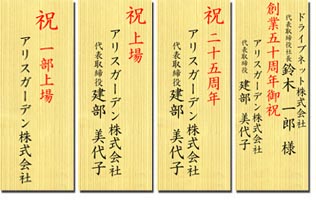 祝
一部上場
アリスガーデン株式会社
祝
上場
アリスガーデン株式会社
代表取締役 建部 美代子
祝
二十五周年
アリスガーデン株式会社
代表取締役 建部 美代子
ドライブネット株式会社
代表取締役社長 鈴木 一郎 様
創業五十周年御祝
アリスガーデン株式会社
代表取締役 建部 美代子